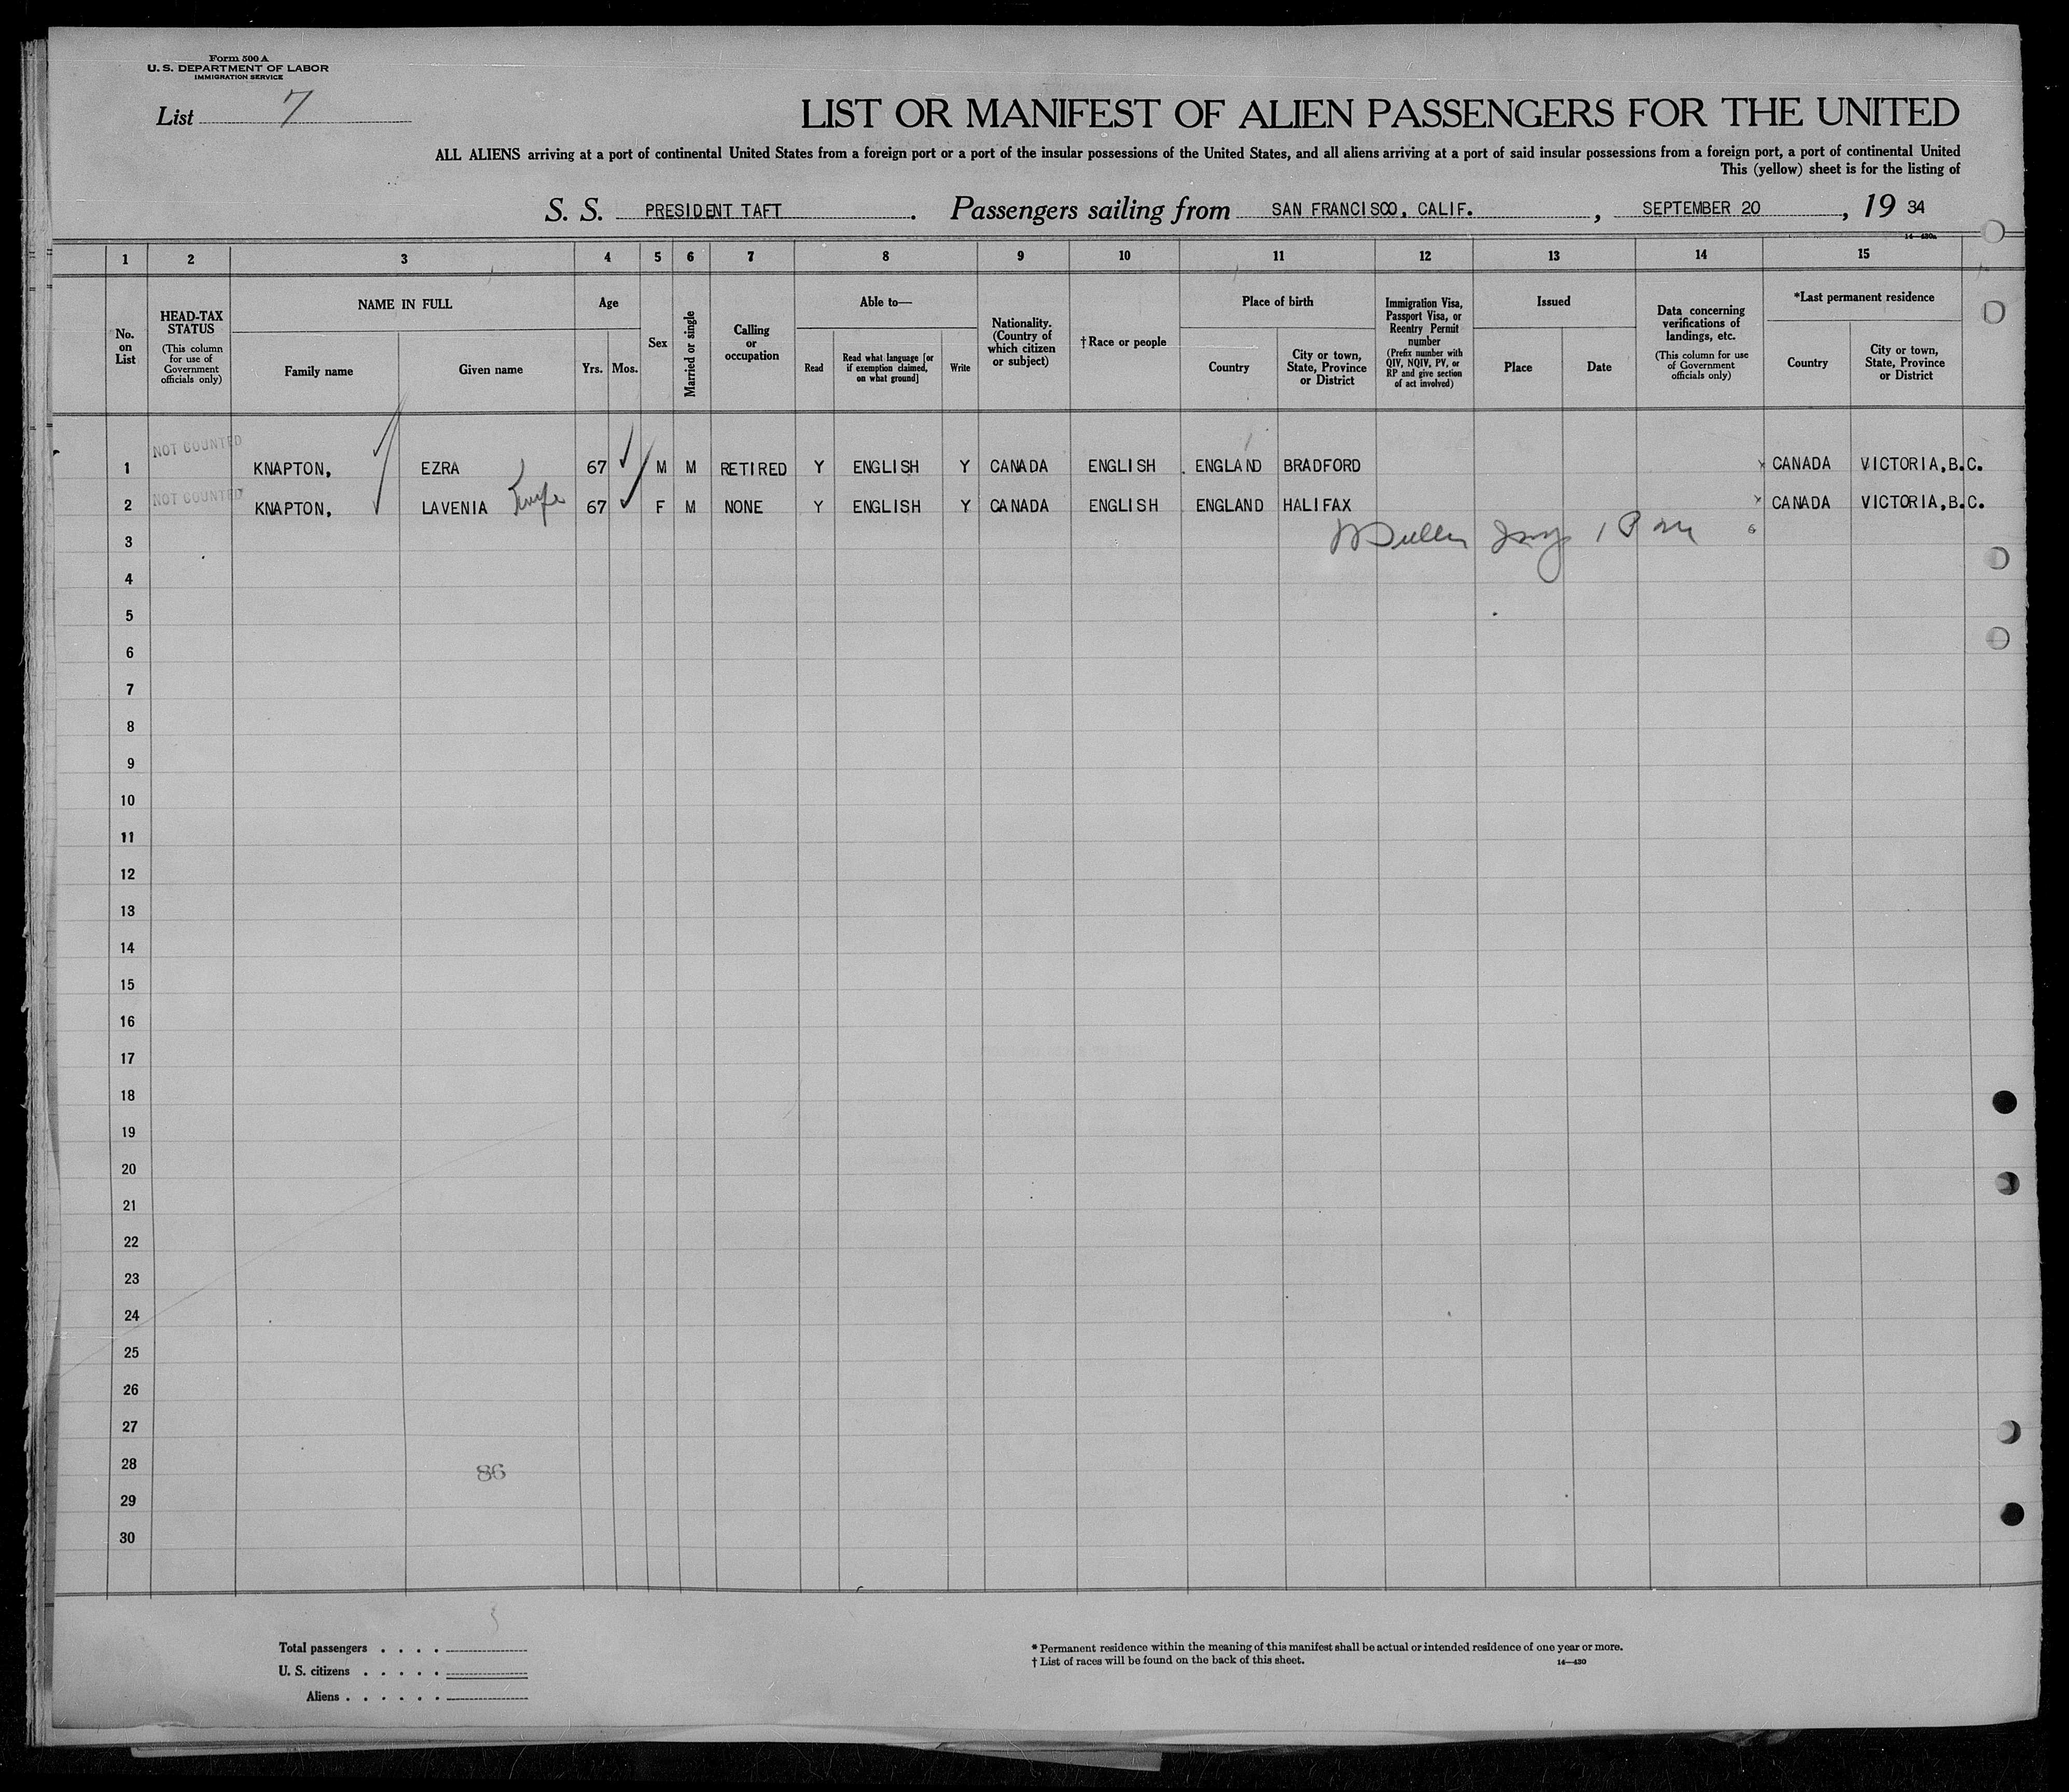 Form 500 A
U. S. DEPARTMENT OF LABOR
IMMIGRATION SERVICE
List 7
LIST OR MANIFEST OF ALIEN PASSENGERS FOR THE UNITED
ALL ALIENS arriving at a port of continental United States from a foreign port or a port of the insular possessions of the United States, and all aliens arriving at a port of said insular possessions from a foreign port, a port of continental United
This (yellow) sheet is for the listing of
S. S. PRESIDENT TAFT. Passengers sailing from SAN FRANCISCO, CALIF., SEPTEMBER 20, 19 34
14—430a
1 2 3 4 5 6 7 8 9 10 11 12 13 14 15
No. on List
HEAD-TAX STATUS
(This column for use of Government officials only)
NAME IN FULL
Family name
Given name
Age
Yrs. Mos.
Sex
Married or single
Calling or occupation
Able to—
Read
Read what language [or if exemption claimed, on what ground]
Write
Nationality. (Country of which citizen or subject)
†Race or people
Place of birth
Country
City or town, State, Province or District
Immigration Visa, Passport Visa, or Reentry Permit number
(Prefix number with QIV, NQIV, PV, or RP and give section of act involved)
Issued
Place
Date
Data concerning verifications of landings, etc.
(This column for use of Government officials only)
*Last permanent residence
Country
City or town, State, Province or District
NOT COUNTED
1 KNAPTON, EZRA 67 M M RETIRED Y ENGLISH Y CANADA ENGLISH ENGLAND BRADFORD CANADA VICTORIA, B.C.
NOT COUNTED
2 KNAPTON, LAVENIA wife 67 F M NONE Y ENGLISH Y CANADA ENGLISH ENGLAND HALIFAX CANADA VICTORIA, B.C.
3
4
5
6
7
8
9
10
11
12
13
14
15
16
17
18
19
20
21
22
23
24
25
26
27
28
86
29
30
Total passengers . . . .
U. S. citizens . . . . .
Aliens . . . . . .
* Permanent residence within the meaning of this manifest shall be actual or intended residence of one year or more.
† List of races will be found on the back of this sheet.
14—430